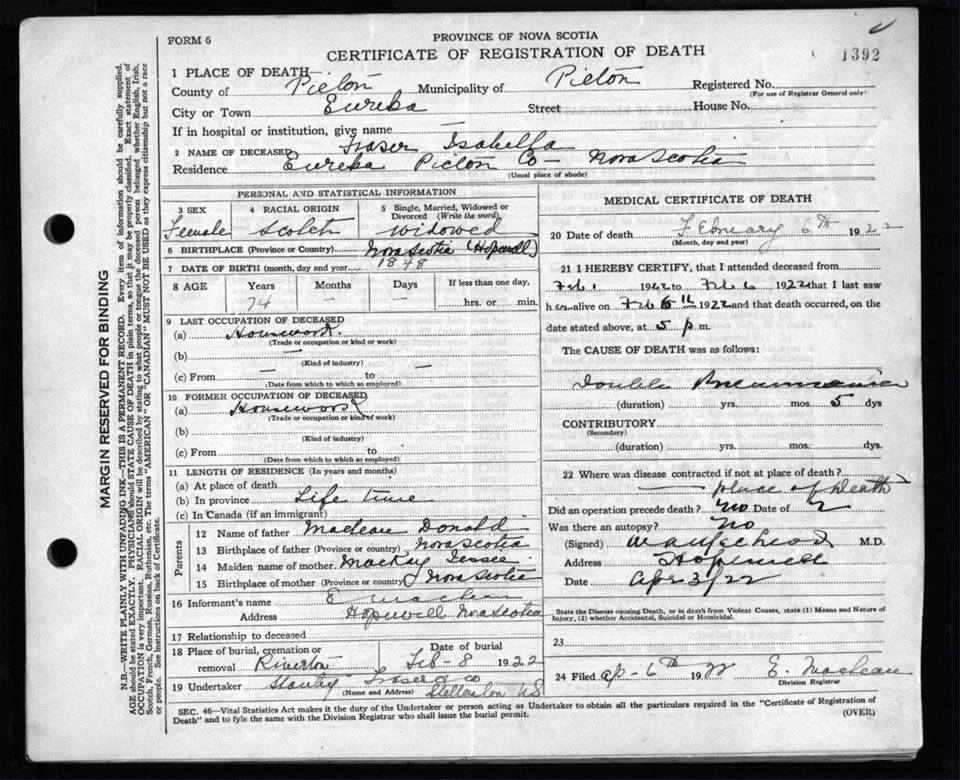 FORM 6
PROVINCE OF NOVA SCOTIA
CERTIFICATE OF REGISTRATION OF DEATH
1392
1 PLACE OF DEATH—
County of Pictou Municipality of Pictou Registered No.
(For use of Registrar General only)
City or Town Eureka Street House No.
If in hospital or institution, give name —
2 NAME OF DECEASED Fraser Isabella
Residence Eureka Pictou Co— Nova Scotia
(Usual place of abode)
PERSONAL AND STATISTICAL INFORMATION
3 SEX
Female
4 RACIAL ORIGIN
Scotch
5 Single, Married, Widowed or Divorced (Write the word)
Widowed
6 BIRTHPLACE (Province or Country) Nova Scotia (Hopewell)
7 DATE OF BIRTH (month, day and year) 1848
8 AGE Years Months Days If less than one day,
74 — — hrs. or min.
9 LAST OCCUPATION OF DECEASED
(a) Housework.
(Trade or occupation or kind or work)
(b) —
(Kind of industry)
(c) From — to —
(Date from which to which so employed)
10 FORMER OCCUPATION OF DECEASED
(a) Housework
(Trade or occupation or kind of work)
(b)
(Kind of industry)
(c) From to
(Date from which to which so employed)
11 LENGTH OF RESIDENCE (In years and months)
(a) At place of death
(b) In province Life time
(c) In Canada (if an immigrant)
Parents
12 Name of father Maclean Donald
13 Birthplace of father (Province or country) Nova Scotia
14 Maiden name of mother MacKay Jessie
15 Birthplace of mother (Province or country) Nova Scotia
16 Informant's name E Maclean
Address Hopewell Nova Scotia
17 Relationship to deceased
18 Place of burial, cremation or removal Riverton
Date of burial
Feb-8 1922
19 Undertaker Stanley Fraser & Co
(Name and Address) Stellarton NS
MEDICAL CERTIFICATE OF DEATH
20 Date of death February 6th 1922
(Month, day and year)
21 I HEREBY CERTIFY, that I attended deceased from
Feb 1 1922 to Feb 6 1922 that I last saw
her alive on Feb 6th 1922 and that death occurred, on the
date stated above, at 5 p m.
The CAUSE OF DEATH was as follows:
Double Pneumonia
(duration) yrs. mos. 5 dys
CONTRIBUTORY
(Secondary)
(duration) yrs. mos. dys.
22 Where was disease contracted if not at place of death?
— place of Death
Did an operation precede death? No Date of
Was there an autopsy? No
(Signed) M.D.
Address Hopewell
Date Apr 3/22
State the Disease causing Death, or in death from Violent Causes, state (1) Means and Nature of
Injury, (2) whether Accidental, Suicidal or Homicidal.
23
24 Filed Ap-6th 1922 E. Maclean
Division Registrar
SEC. 46—Vital Statistics Act makes it the duty of the Undertaker or person acting as Undertaker to obtain all the particulars required in the "Certificate of Registration of
Death" and to fyle the same with the Division Registrar who shall issue the burial permit.
(OVER)
MARGIN RESERVED FOR BINDING
N.B.—WRITE PLAINLY WITH UNFADING INK—THIS IS A PERMANENT RECORD. Every item of information should be carefully supplied.
AGE should be stated EXACTLY. PHYSICIANS should STATE CAUSE OF DEATH in plain terms, so that it may be properly classified. Exact statement of
OCCUPATION is very important. RACIAL ORIGIN will be described by stating to what people or tongue the deceased person belonged whether English, Irish,
Scotch, French, German, Russian, Ruthenian, etc. The terms "AMERICAN" or "CANADIAN" MUST NOT BE USED as they express citizenship but not a race
or people. See instructions on back of Certificate.